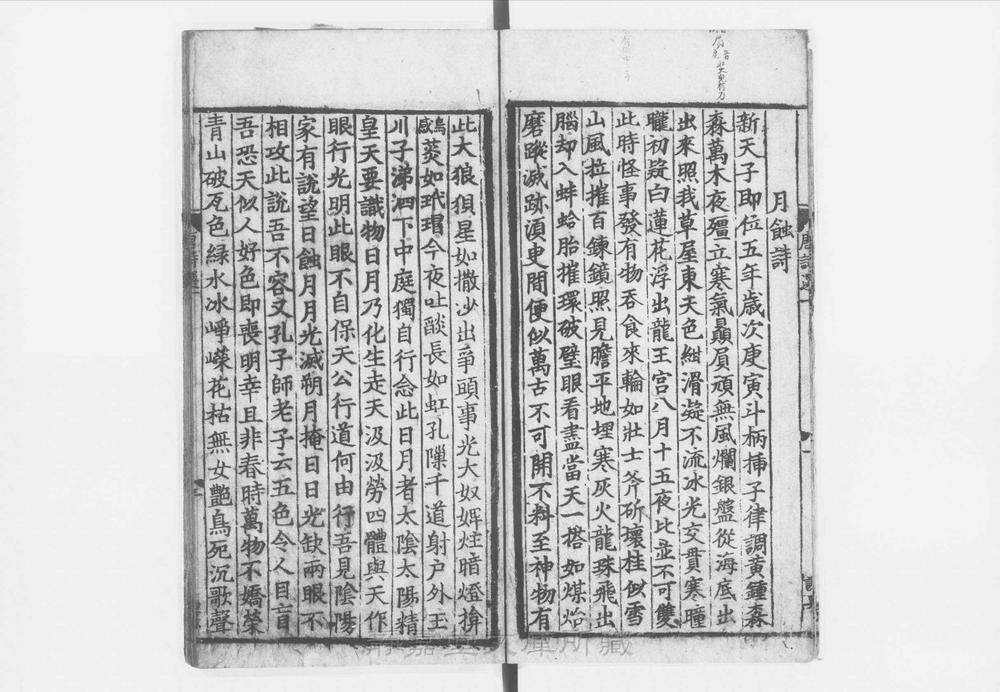 月蝕詩
新天子即位五年歲次庚寅斗柄揷子律調黃鍾森
森萬木夜殭立寒氣贔屓頑無風爛銀盤從海底出
出來照我草屋東天色紺滑凝不流冰光交貫寒曈
曨初疑白蓮花浮出龍王宮八月十五夜比並不可雙
此時怪事發有物吞食來輪如壯士斧斫壞桂似雪
山風拉摧百鍊鏡照見膽平地埋寒灰火龍珠飛出
腦却入蚌蛤胎摧環破璧眼看盡當天一搭如煤炲
磨蹤滅跡須更間便似萬古不可開不料至神物有
此大狼狽星如撒沙出爭頭事光大奴婢炷暗燈揜
菼如玳瑁今夜吐燄長如虹孔隟千道射户外玉
川子涕泗下中庭獨自行念此日月者太陰太陽精
皇天要識物日月乃化生走天汲汲勞四體與天作
眼行光明此眼不自保天公行道何由行吾見陰陽
家有說望日蝕月月光滅朔月掩日日光缺兩眼不
相攻此說吾不容又孔子師老子云五色令人目盲
吾恐天似人好色即喪明幸且非春時萬物不嬌榮
青山破瓦色綠水冰崢嶸花枯無女艷鳥死沉歌聲
唐詩
靜嘉堂文庫所藏